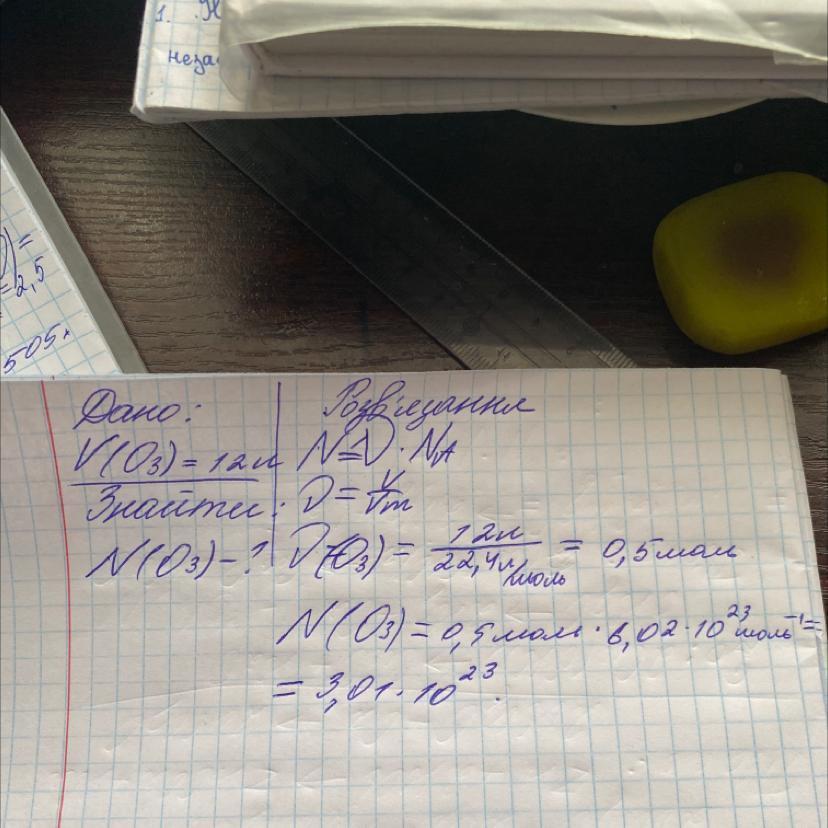 1.
неза
) =
= 2,5
505.
Дано:
V(O₃) = 12л
Знайти:
N(O₃) - ?
Розв'язання
N = ν · Nₐ
ν = V/Vm
ν(O₃) = 12л / 22,4л/моль = 0,5моль
N(O₃) = 0,5моль · 6,02 · 10²³ моль⁻¹ =
= 3,01 · 10²³.